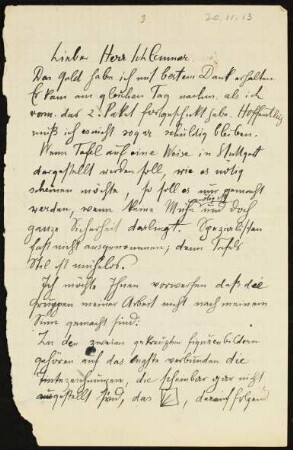 20.11.13
3
Lieber Herr Schlemmer.
Das Geld habe ich mit bestem Dank erhalten.
Er kam am gleichen Tag nachm. als ich
vorm. das 2. Paket fortgeschickt habe. Hoffentlich
muß ich es nicht so schuldig bleiben.
Wenn Tafel auf eine Weise in Stuttgart
dargestellt werden soll, wie es nötig
scheinen möchte, so soll es nur gemacht
werden, wenn keine Mühe und doch
ganze Sicherheit darliegt. Spezialisten
fast nicht ausgenommen; denn Tafels
Stil ist mühelos.
Ich möchte Ihnen vorwerfen daß die
Gruppen meiner Arbeit nicht nach meinem
Sinn gemacht sind.
Zu den zweien gekreuzten figürenbildern
gehören auf das engste verbunden die
zeichnungen, die scheinbar gar nicht
ausgestellt sind, das , darauffolgend